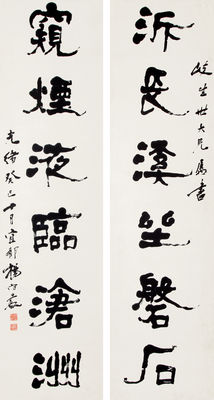 泝長溪坐磐石
生世大兄属書
窺煙液臨滄洲
光緒癸巳十月宜都楊守敬